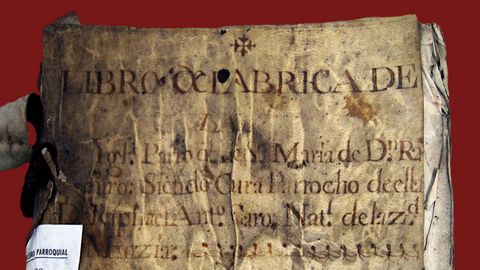 LIBRO DE FABRICA DE
LA
Ygl.ª Parroq.l de S.ta Maria de D.n Ra
miro: Siendo Cura Parrocho de ella
D. Raphael Ant.o Caro, Nat.l de la z.d
Murzia:
PARROQUIAL